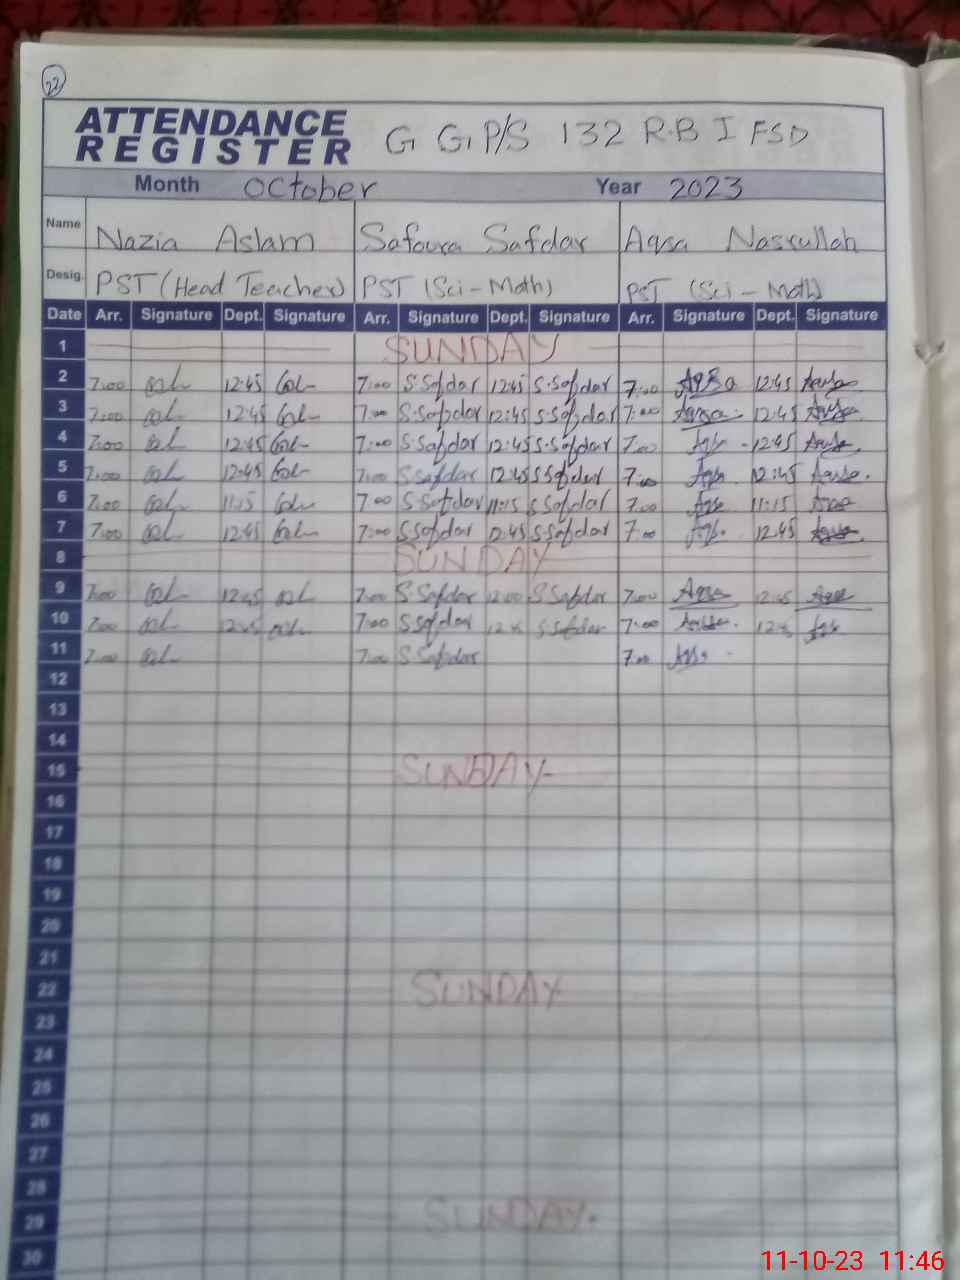 22
ATTENDANCE REGISTER G G P/S 132 R.B I FSD
Month October Year 2023
Name Nazia Aslam Safoura Safdar Aqsa Nasrullah
Desig. PST (Head Teacher) PST (Sci-Math) PST (Sci-Math)
Date Arr. Signature Dept. Signature Arr. Signature Dept. Signature Arr. Signature Dept. Signature
1 SUNDAY
2 7:00 12:45 7:00 S.Safdar 12:45 S.Safdar 7:00 Aqsa 12:45 Aqsa
3 7:00 12:45 7:00 S.Safdar 12:45 S.Safdar 7:00 Aqsa 12:45 Aqsa
4 7:00 12:45 7:00 S.Safdar 12:45 S.Safdar 7:00 Aqsa 12:45 Aqsa
5 7:00 12:45 7:00 S.Safdar 12:45 S.Safdar 7:00 Aqsa 12:45 Aqsa
6 7:00 11:15 7:00 S.Safdar 11:15 S.Safdar 7:00 Aqsa 11:15 Aqsa
7 7:00 12:45 7:00 S.Safdar 12:45 S.Safdar 7:00 Aqsa 12:45 Aqsa
8 SUNDAY
9 7:00 12:45 7:00 S.Safdar S.Safdar 7:00 Aqsa 12:45 Aqsa
10 7:00 12:45 7:00 S.Safdar 12:45 S.Safdar 7:00 Aqsa 12:45 Aqsa
11 7:00 7:00 S.Safdar 7:00 Aqsa
12
13
14
15 SUNDAY
16
17
18
19
20
21
22 SUNDAY
23
24
25
26
27
28
29 SUNDAY
30
11-10-23 11:46